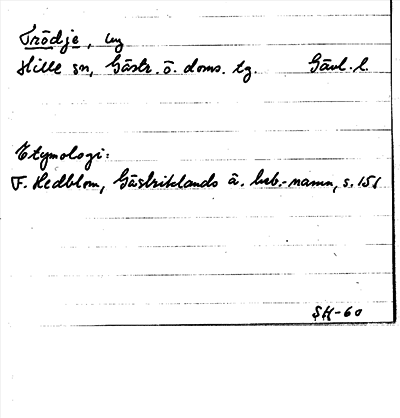 Trödje, by
Hille sn, Gästr. ö. doms. tg. Gävl. l.
Etymologi:
F. Hedblom, Gästriklands ä. beb.-namn, s. 151
SH-60